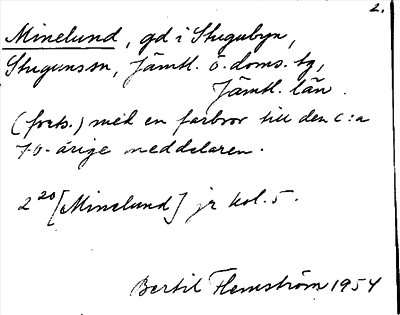 2.
Minelund, gd i Stugubyn,
Stuguns sn, Jämtl. ö. doms. tg,
Jämtl. län.
(forts.) med en farbror till den c:a
70-årige meddelaren.
2²⁰ [Minelund] jr kol. 5.
Bertil Flemström 1954